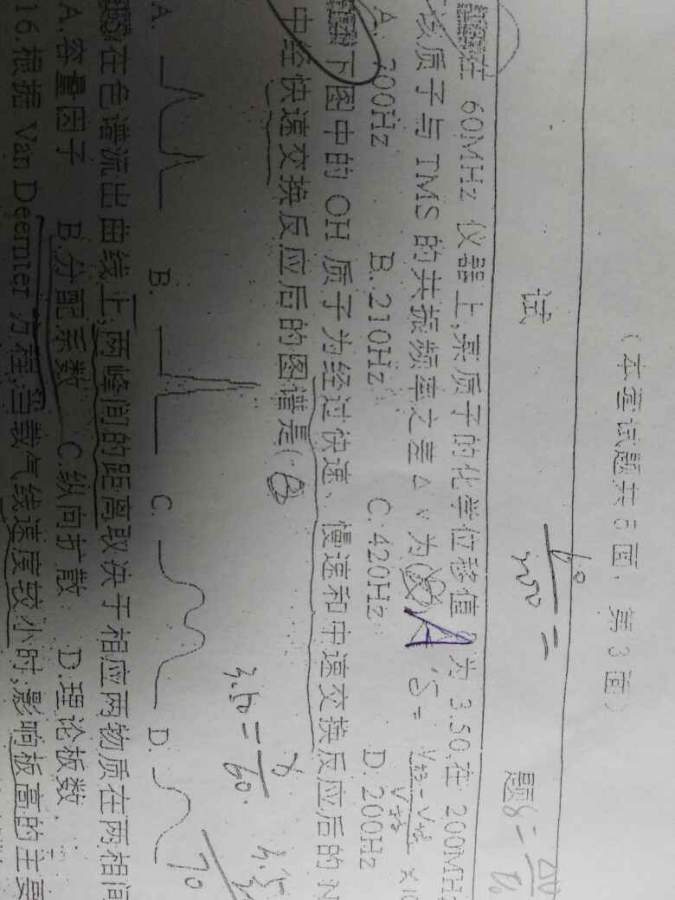 (本套试题共8面,第3面)
试 题
在 60MHz 仪器上,某质子的化学位移值 为 3.50,在 200MHz
该质子与 TMS 的共振频率之差 Δν 为( A
A. 700Hz B. 210Hz C. 420Hz D. 200Hz
下图中的 OH 质子为经过快速、慢速和中速交换反应后的 N
中经快速交换反应后的图谱是( B
A. B. C. D.
在色谱流出曲线上,两峰间的距离取决于相应两物质在两相间
A. 容量因子 B. 分配系数 C. 纵向扩散 D. 理论板数
16. 根据 Van Deemter 方程,当载气线速度较小时,影响板高的主要
3.50 = x/60
70